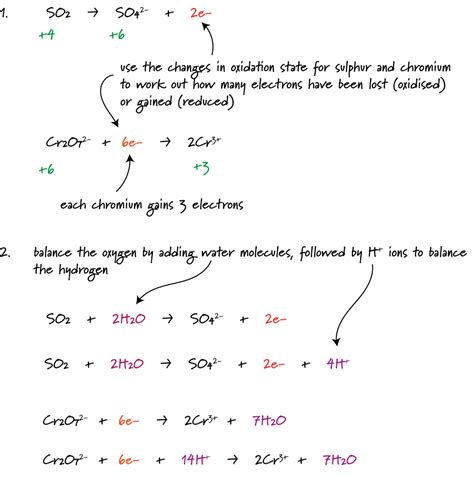 1. SO₂ → SO₄²⁻ + 2e-
+4 +6
use the changes in oxidation state for sulphur and chromium
to work out how many electrons have been lost (oxidised)
or gained (reduced)
Cr₂O₇²⁻ + 6e- → 2Cr³⁺
+6 +3
each chromium gains 3 electrons
2. balance the oxygen by adding water molecules, followed by H⁺ ions to balance
the hydrogen
SO₂ + 2H₂O → SO₄²⁻ + 2e-
SO₂ + 2H₂O → SO₄²⁻ + 2e- + 4H⁺
Cr₂O₇²⁻ + 6e- → 2Cr³⁺ + 7H₂O
Cr₂O₇²⁻ + 6e- + 14H⁺ → 2Cr³⁺ + 7H₂O